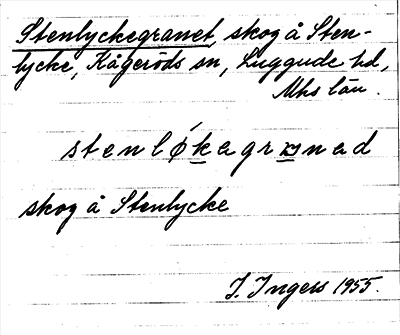 Stenlyckegranet, skog å Sten-
lycke, Kågeröds sn, Luggude hd,
Mhs län.
stenlǿkagrɒnad
skog å Stenlycke
I. Ingers 1955.